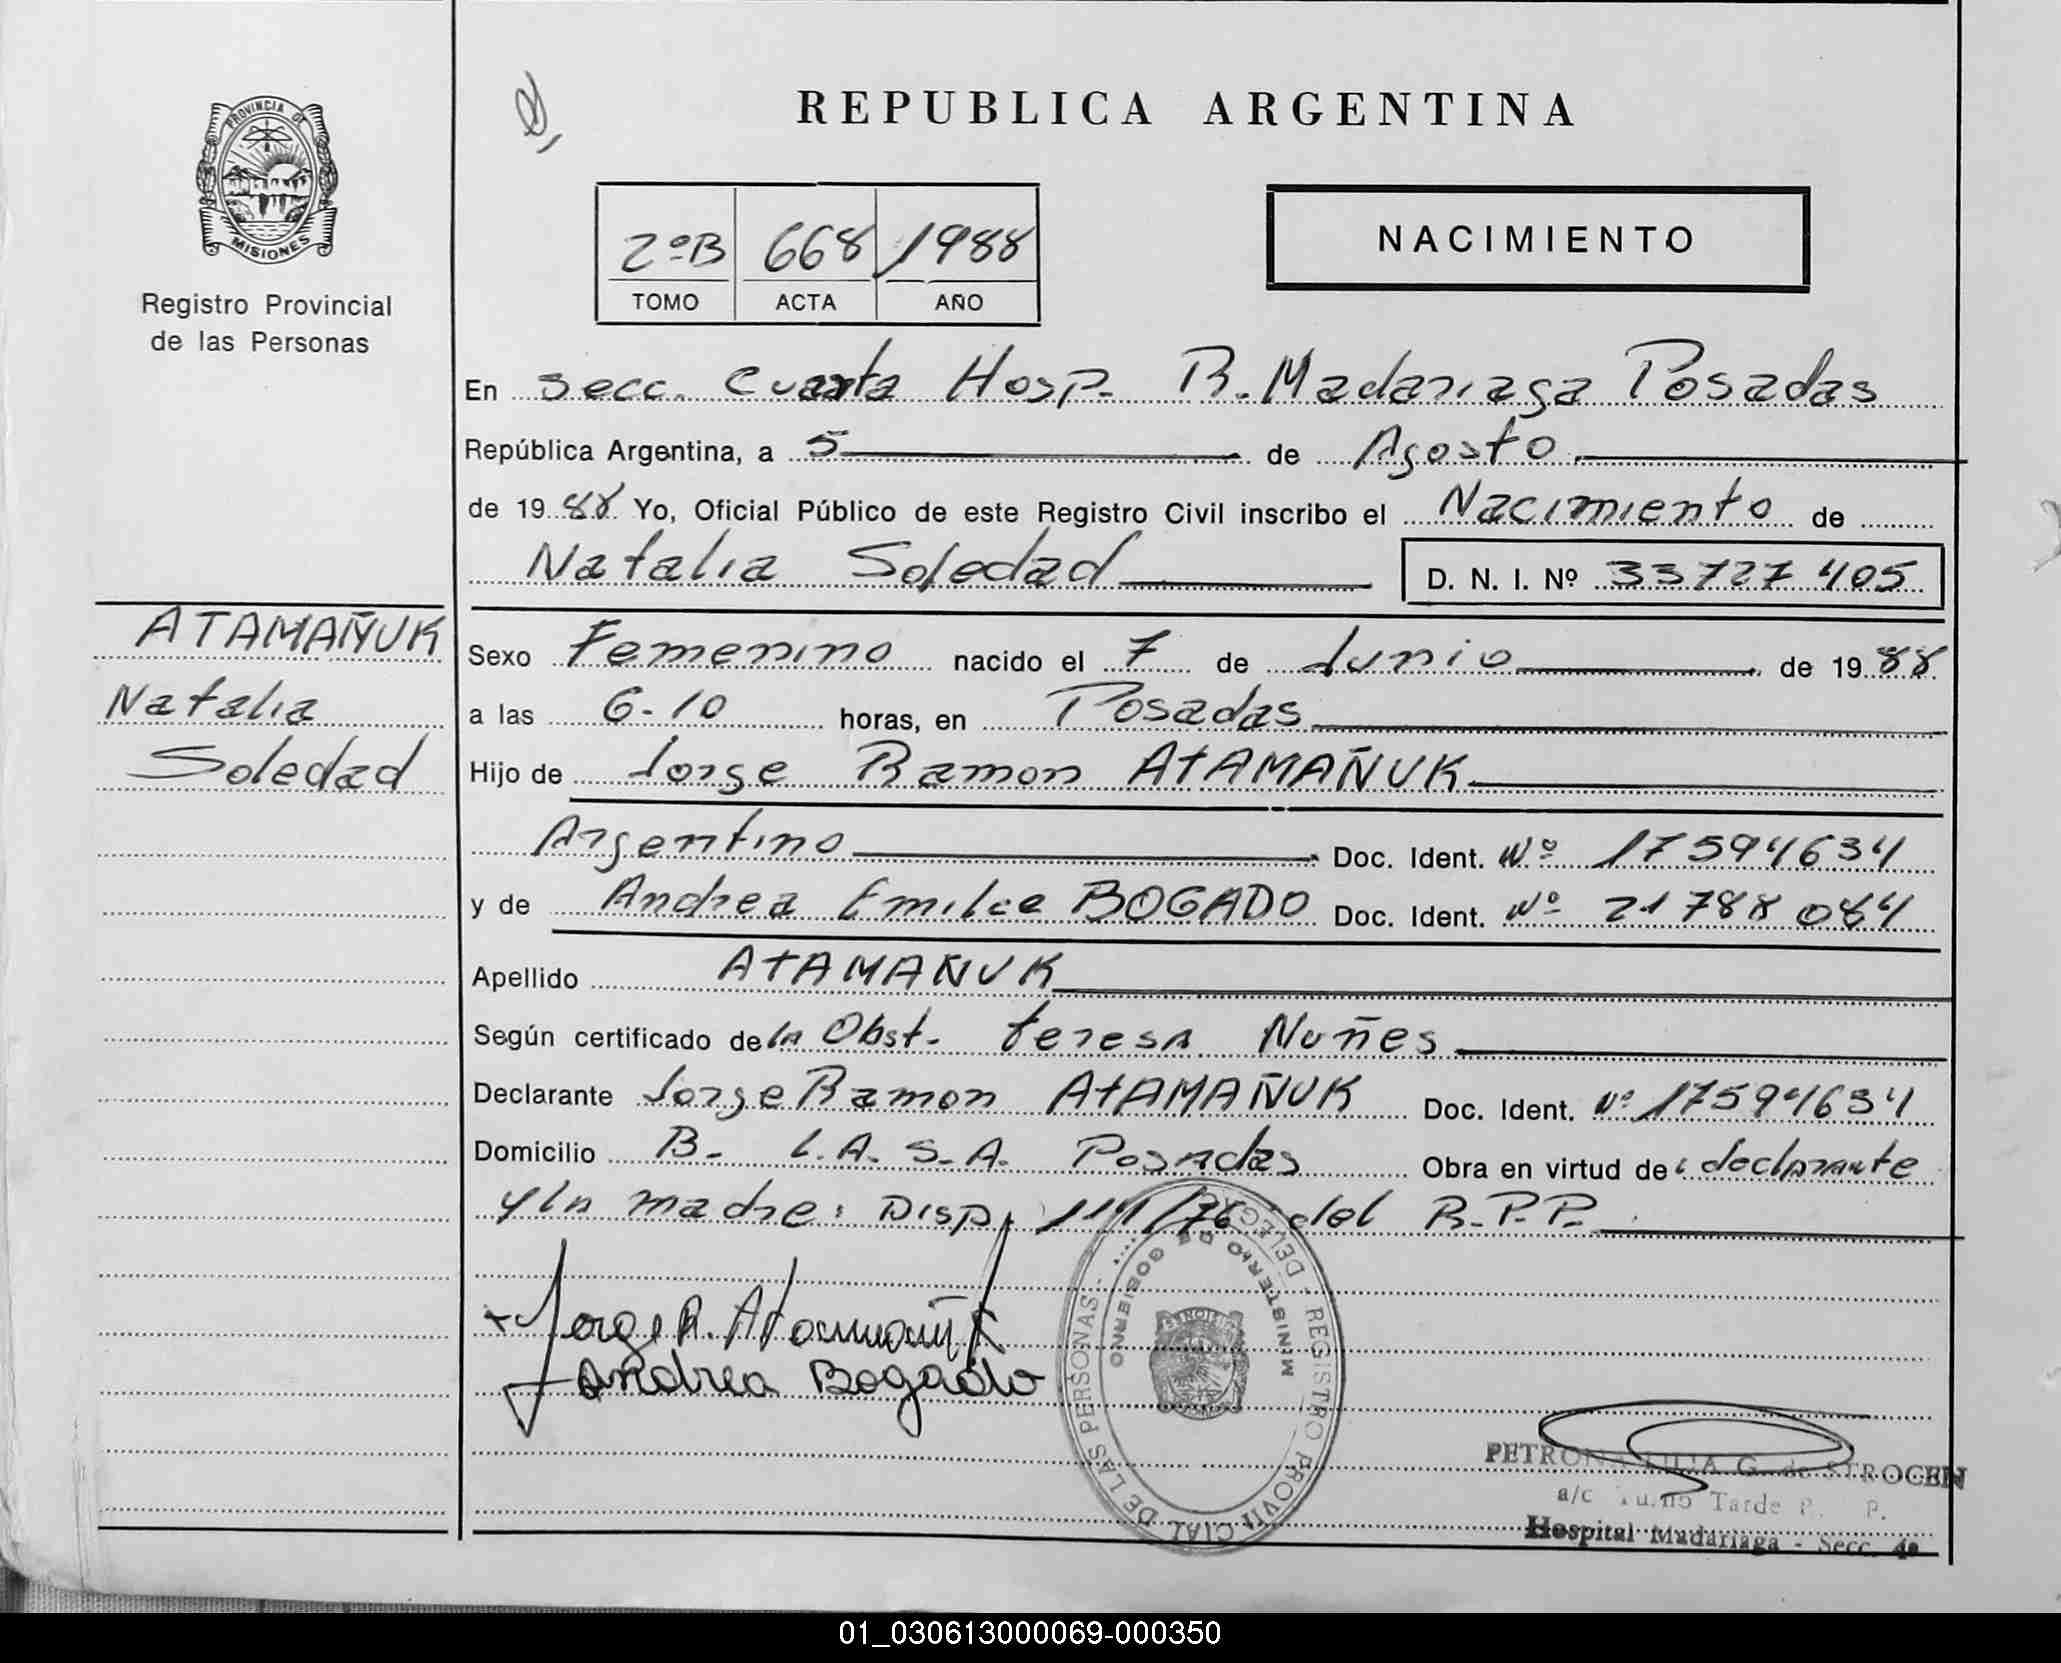 REPUBLICA ARGENTINA
PROVINCIA DE
MISIONES
Registro Provincial
de las Personas
2ºB 668 1988
TOMO ACTA AÑO
NACIMIENTO
En secc. Cuarta Hosp. R. Madariaga Posadas
República Argentina, a 5 de Agosto
de 1988 Yo, Oficial Público de este Registro Civil inscribo el Nacimiento de
Natalia Soledad D. N. I. Nº 33727405
ATAMAÑUK
Natalia
Soledad
Sexo Femenino nacido el 7 de Junio de 1988
a las 6-10 horas, en Posadas
Hijo de Jorge Ramon ATAMAÑUK
Argentino Doc. Ident. Nº 17594634
y de Andrea Emilce BOGADO Doc. Ident. Nº 21788084
Apellido ATAMAÑUK
Según certificado de la Obst. Teresa Nuñes
Declarante Jorge Ramon ATAMAÑUK Doc. Ident. Nº 17594634
Domicilio B. L.A.S.A. Posadas Obra en virtud de: declarante
y la madre: Disp. 111/76 del R.P.P.
Jorge R. Atamañuk
Andrea Bogado
REGISTRO PROVINCIAL DE LAS PERSONAS
MINISTERIO DE GOBIERNO
G. de STROCEN
a/c Turno Tarde
Hospital Madariaga - Secc. 4a
01_030613000069-000350